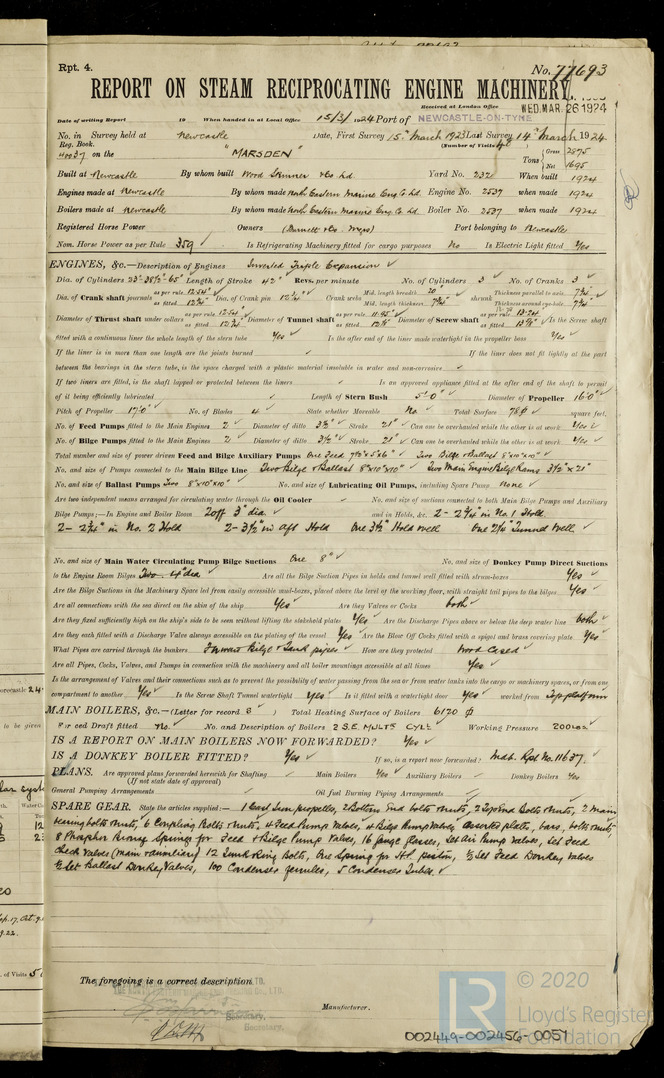 Rpt. 4.
No. 77693
REPORT ON STEAM RECIPROCATING ENGINE MACHINERY.
Received at London Office WED. MAR. 26 1924
Date of writing Report 19 When handed in at Local Office 15/3/1924 Port of NEWCASTLE-ON-TYNE
No. in Survey held at Newcastle Date, First Survey 15th March 1923 Last Survey 14th March 1924
Reg. Book. (Number of Visits
40037 on the "MARSDEN" Tons Gross 2875 Net 1695
Built at Newcastle By whom built Wood Skinner & Co Ld Yard No. 232 When built 1924
Engines made at Newcastle By whom made North Eastern Marine Eng Co Ld. Engine No. 2537 when made 1924
Boilers made at Newcastle By whom made North Eastern Marine Eng Co Ld. Boiler No. 2537 when made 1924
Registered Horse Power Owners (Burnett & Co. Port belonging to Newcastle
Nom. Horse Power as per Rule 359 Is Refrigerating Machinery fitted for cargo purposes No Is Electric Light fitted Yes
ENGINES, &c.—Description of Engines Inverted Triple Expansion
Dia. of Cylinders 23"-38½"-65" Length of Stroke 42" Revs. per minute No. of Cylinders 3 No. of Cranks 3
Dia. of Crank shaft journals as per rule 12.54" as fitted 12¾" Dia. of Crank pin 12¾" Crank webs Mid. length breadth 20" Mid. length thickness 7¾" shrunk Thickness parallel to axis 7¾" Thickness around eye-hole
Diameter of Thrust shaft under collars as per rule 12.54" as fitted 12¾" Diameter of Tunnel shaft as per rule 11.95" as fitted Diameter of Screw shaft as per rule 13.24" as fitted Is the Screw shaft
fitted with a continuous liner the whole length of the stern tube Yes Is the after end of the liner made watertight in the propeller boss Yes
If the liner is in more than one length are the joints burned If the liner does not fit tightly at the part
between the bearings in the stern tube, is the space charged with a plastic material insoluble in water and non-corrosive
If two liners are fitted, is the shaft lapped or protected between the liners Is an approved appliance fitted at the after end of the shaft to permit
of it being efficiently lubricated Length of Stern Bush 5'-0" Diameter of Propeller 16'0"
Pitch of Propeller 17'0" No. of Blades 4 State whether Moveable No Total Surface 78 square feet.
No. of Feed Pumps fitted to the Main Engines 2 Diameter of ditto 3½" Stroke 21" Can one be overhauled while the other is at work Yes
No. of Bilge Pumps fitted to the Main Engines 2 Diameter of ditto 3½" Stroke 21" Can one be overhauled while the other is at work Yes
Total number and size of power driven Feed and Bilge Auxiliary Pumps One Feed 7½"x5"x6" Two Bilge & Ballast 8"x10"x10"
No. and size of Pumps connected to the Main Bilge Line Two Bilge & Ballast 8"x10"x10" Two Main Engine Bilge Rams 3½"x21"
No. and size of Ballast Pumps Two 8"x10"x10" No. and size of Lubricating Oil Pumps, including Spare Pump none
Are two independent means arranged for circulating water through the Oil Cooler No. and size of suctions connected to both Main Bilge Pumps and Auxiliary
Bilge Pumps;—In Engine and Boiler Room 2 off 3" dia and in Holds, &c. 2-2¼" in No. 1 Hold
2-2¼" in No. 2 Hold 2-3½" in Aft Hold One 3½" Hold Well One 2½" Tunnel Well
No. and size of Main Water Circulating Pump Bilge Suctions One 8" No. and size of Donkey Pump Direct Suctions
to the Engine Room Bilges Two - 4" dia Are all the Bilge Suction Pipes in holds and tunnel well fitted with strum-boxes Yes
Are the Bilge Suctions in the Machinery Space led from easily accessible mud-boxes, placed above the level of the working floor, with straight tail pipes to the bilges Yes
Are all connections with the sea direct on the skin of the ship Yes Are they Valves or Cocks both
Are they fixed sufficiently high on the ship's side to be seen without lifting the stokehold plates Yes Are the Discharge Pipes above or below the deep water line both
Are they each fitted with a Discharge Valve always accessible on the plating of the vessel Yes Are the Blow Off Cocks fitted with a spigot and brass covering plate Yes
What Pipes are carried through the bunkers Forward Bilge & Tank pipes How are they protected Wood Cased
Are all Pipes, Cocks, Valves, and Pumps in connection with the machinery and all boiler mountings accessible at all times Yes
Is the arrangement of Valves and their connections such as to prevent the possibility of water passing from the sea or from water tanks into the cargo or machinery spaces, or from one
compartment to another Yes Is the Screw Shaft Tunnel watertight Yes Is it fitted with a watertight door Yes worked from Top platform
MAIN BOILERS, &c.—(Letter for record S) Total Heating Surface of Boilers 6170
Forced Draft fitted No. No. and Description of Boilers 2 S.E. MULT'R CYLL Working Pressure 200 lbs
IS A REPORT ON MAIN BOILERS NOW FORWARDED? Yes
IS A DONKEY BOILER FITTED? Yes If so, is a report now forwarded? Mdb. Rpt No. 11637.
PLANS. Are approved plans forwarded herewith for Shafting Main Boilers Yes Auxiliary Boilers Donkey Boilers Yes
(If not state date of approval)
General Pumping Arrangements Oil fuel Burning Piping Arrangements
SPARE GEAR. State the articles supplied:— 1 Cast Iron propeller, 2 Bottom End bolts & nuts, 2 Top End Bolts & nuts, 2 main
bearing bolts & nuts, 6 Coupling Bolts & nuts, 4 Feed Pump Valves, 4 Bilge Pump Valves, assorted plates, bars, bolts & nuts,
8 Phosphor Bronze Springs for Feed & Bilge Pump Valves, 16 gauge glasses, Set Air Pump Valves, Set Feed
check Valves (main & auxiliary) 12 Junk Ring Bolts, One Spring for H.P. piston, ½ Set Feed Donkey Valves
½ Set Ballast Donkey Valves, 100 Condenser ferrules, 5 Condenser Tubes.
The foregoing is a correct description
Manufacturer.
Secretary.
Secretary.
002449-002456-0051
© 2020
Lloyd's Register
Foundation